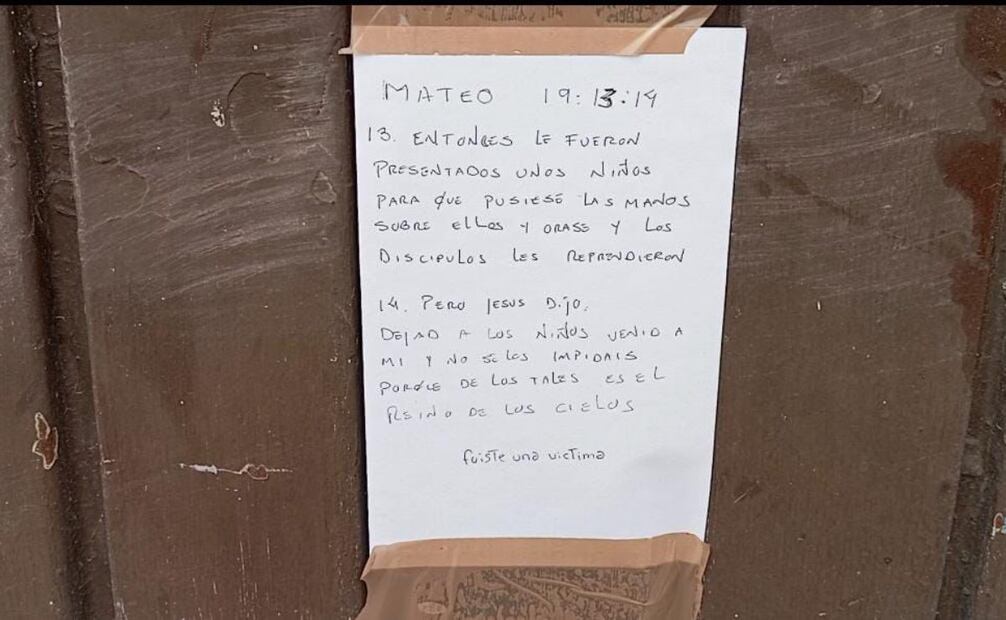 MATEO 19:13:14
13. ENTONCES LE FUERON
PRESENTADOS UNOS NIÑOS
PARA QUE PUSIESE LAS MANOS
SOBRE ELLOS Y ORASE Y LOS
DISCIPULOS LES REPRENDIERON
14. PERO JESUS DIJO.
DEJAD A LOS NIÑOS VENID A
MI Y NO SE LOS IMPIDAIS
PORQUE DE LOS TALES ES EL
REINO DE LOS CIELOS
fuiste una victima